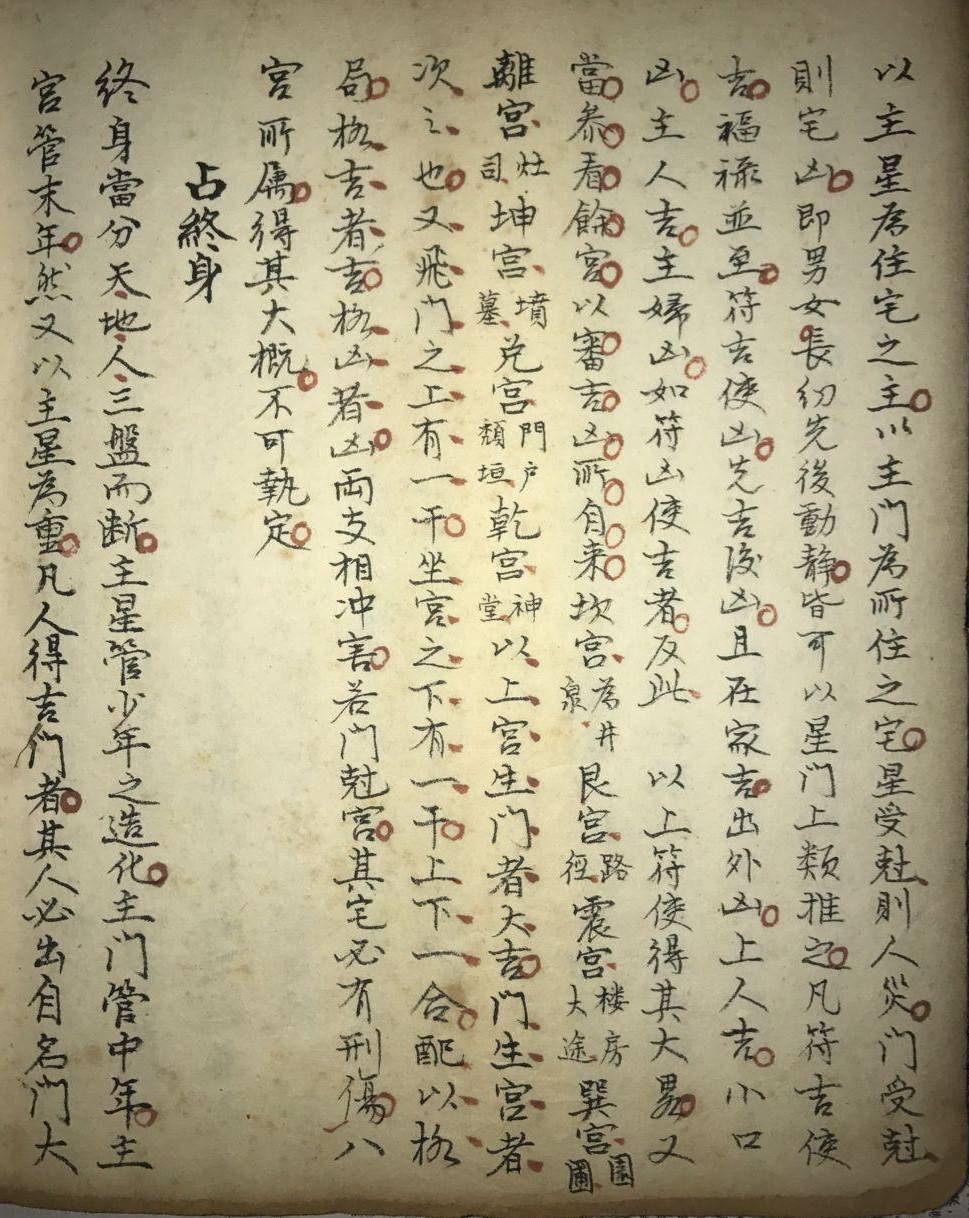 以主星為住宅之主以主門為所住之宅星受尅則人災门受尅
則宅凶即男女長幼先後動静皆可以星门上类推之凡符吉使
吉福禄並至符吉使凶先吉後凶且在家吉出外凶上人吉小口
凶主人吉主婦凶如符凶使吉者反此 以上符使得其大畧又
當叅看餘宮以審吉凶所自来坎宮為井泉艮宮路徑震宮楼房大途巽宮園圃
離宮灶司坤宮墳墓兑宮門户頹垣乾宮神堂以上宮生门者大吉门生宮者
次之也又飛门之上有一干坐宮之下有一干上下一合配以格
局格吉者吉格凶者凶両支相冲害若门尅宮其宅必有刑傷八
宮所属得其大概不可執定
占終身
終身當分天地人三盤而断主星管少年之造化主门管中年主
宮管末年然又以主星為重凡人得吉们者其人必出自名门大